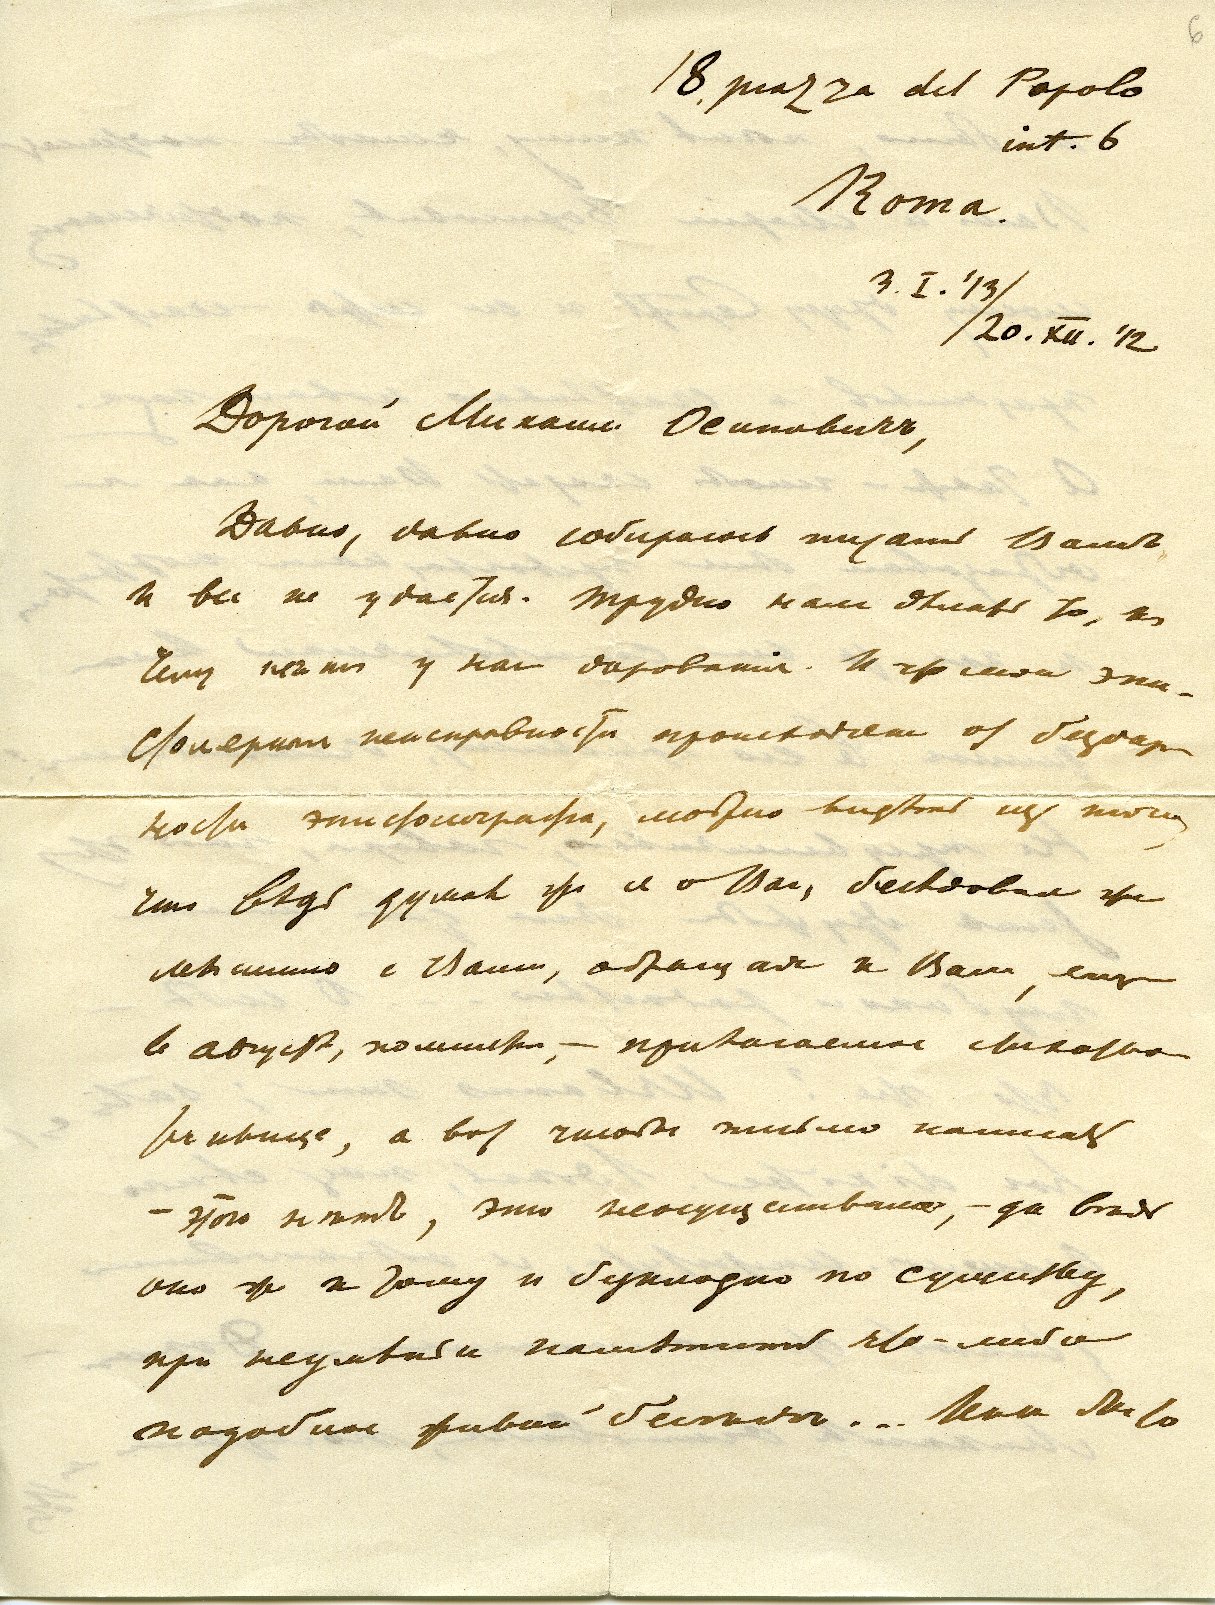 6
18, piazza del Popolo
int. 6
Roma.
3. I. '13/
/20. XII. '12
Дорогой Михаил Осиповичъ,
Давно, давно собираюсь писать Вамъ
и все не удается. Трудно нам дѣлать то, къ
чему нѣтъ у нас дарованiя. И что мои эпи-
столярныя неисправности происходят от бездар-
ности эпистолографа, можно видѣть из того,
что вѣдь думал же я о Вас, бесѣдовал же
мысленно с Вами, обращал к Вам, еще
в августѣ, помнится, — прилагаемое стихотво-
ренiе, а вот письмо написать
— этого нѣтъ, это неосуществимо, — да
оно же к тому и по существу,
при неумѣнiи намѣтить что-либо
подобное живой бесѣдѣ... было